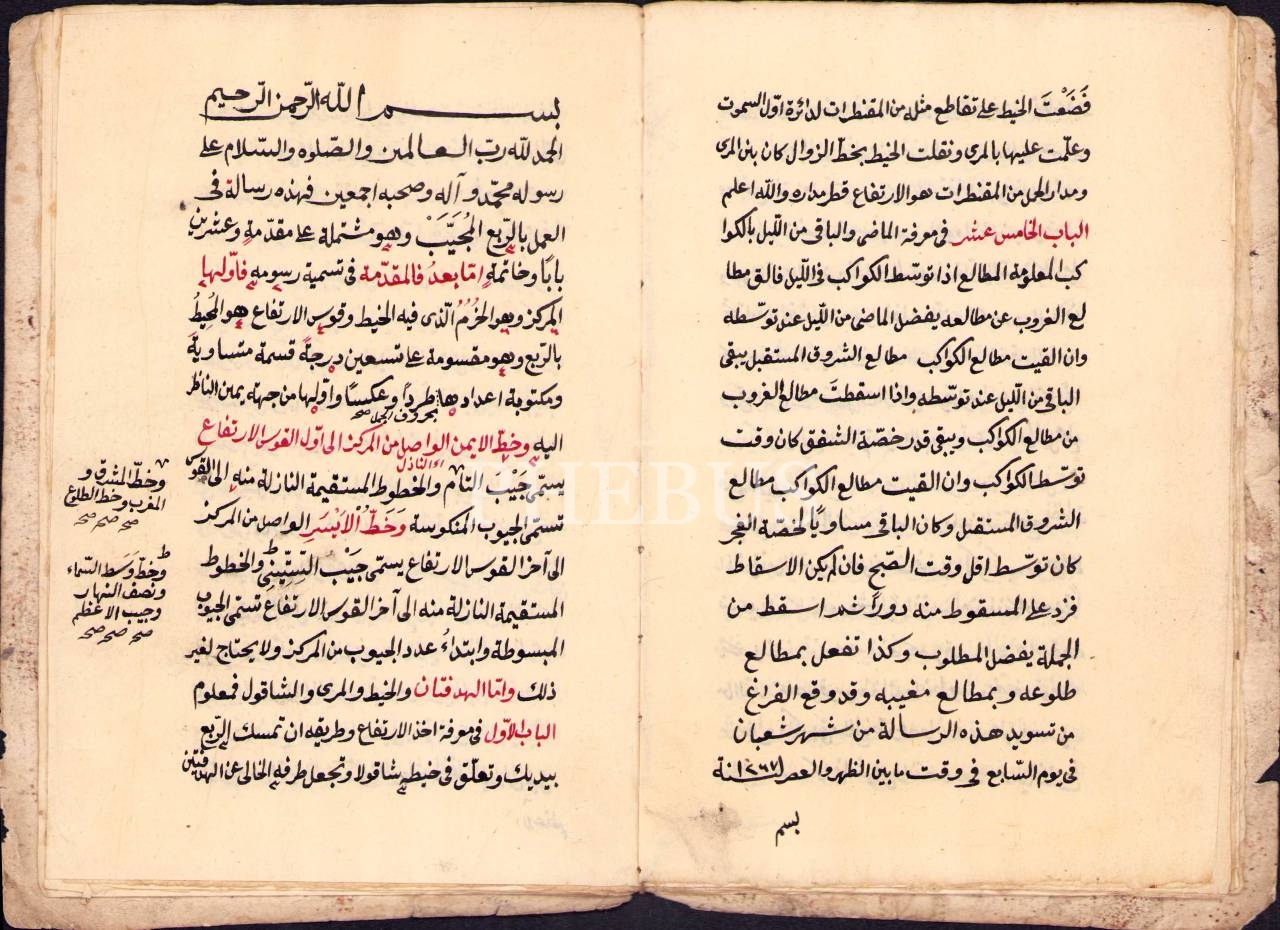 فَضَعْتَ الخيط على تقاطع مثله من المقنطرات لدائرة اوّل السموت
وعلّمت عليها بالمرى ونقلت الخيط بخطّ الزوال كان بين المرى
ومدار الحمل من المقنطرات هو الارتفاع قطر مداره والله اعلم
الباب الخامس عشر فى معرفة الماضى والباقى من اللّيل بالكوا
كب المعلومة المطالع اذا توسّط الكواكب فى اللّيل فالق مطا
لع الغروب عن مطالعه يفضل الماضى من اللّيل عند توسّطه
وان القيت مطالع الكواكب مطالع الشروق المستقبل يبقى
الباقى من اللّيل عند توسّطه واذا اسقطتَ مطالع الغروب
من مطالع الكواكب ويبقى قدر خصّة الشفق كان وقت
توسّط الكواكب وان القيت مطالع الكواكب مطالع
الشروق المستقبل وكان الباقى مساويًا لخصّة الفجر
كان توسّط اقل وقت الصّبح فان لم يكن الاسقاط
فزد على المسقوط منه دورًا ثم اسقط من
الجملة يفضل المطلوب وكذا تفعل بمطالع
طلوعه وبمطالع مغيبه وقد وقع الفراغ
من تسويد هذه الرسالة من شهر شعبان
فى يوم السّابع فى وقت ما بين الظهر والعصر سنة ١٢٦٧
بسم
بسم الله الرّحمن الرّحيم
الحمد لله ربّ العالمين والصّلوه والسّلام على
رسوله محمّد وآله وصحبه اجمعين فهذه رسالة فى
العمل بالرّبع المُجَيَّبَ وهو مشتملة على مقدّمةٍ وعشرين
بابًا وخاتمةٍ امّا بعدُ فالمقدّمة فى تسمية رسومه فاوّلها
المركز وهو الخُرُمُ الّذى فيه الخيط وقوس الارتفاع هو المُحِيطُ
بالرّبع وهو مقسومة على تسعين درجةً قسمة متساويةً
ومكتوبة اعدادها طردًا وعكسًا واوّلها من جهة يمين الناظر
بحروف الجمل صح
اليه وخطّ الايمن الواصل من المركز الى اوّل القوس الارتفاع
يسمّى جَيْبَ التامّ والخطوط المستقيمة النازلة منه الى القوس
تسمّى الجيوب المنكوسة وَخَطُّ الْاَيْسَرِ الواصل من المركز
الى آخر القوس الارتفاع يسمّى جَيْبَ السِّتِّينِىّ والخطوط
المستقيمة النازلة منه الى آخر القوس الارتفاع تسمّى الجيوب
المبسوطة وابتداءُ عدد الجيوب من المركز ولا يحتاج لغير
ذلك وامّا الهدفتان والخيط والمرى والشاقول فمعلوم
الباب الاوّل فى معرفة اخذ الارتفاع وطريقه ان تمسك الرّبع
بيديك وتعلّق فى خيطه شاقولا وتجعل طرفه الخالى عن الهدفتين
وخطّ المشرق و
المغرب وخط الطلوع
صح صح صح
وخطّ وَسَط السّماء
ونصف النهار
وجيب الاعظم
صح صح صح
PHEBUS